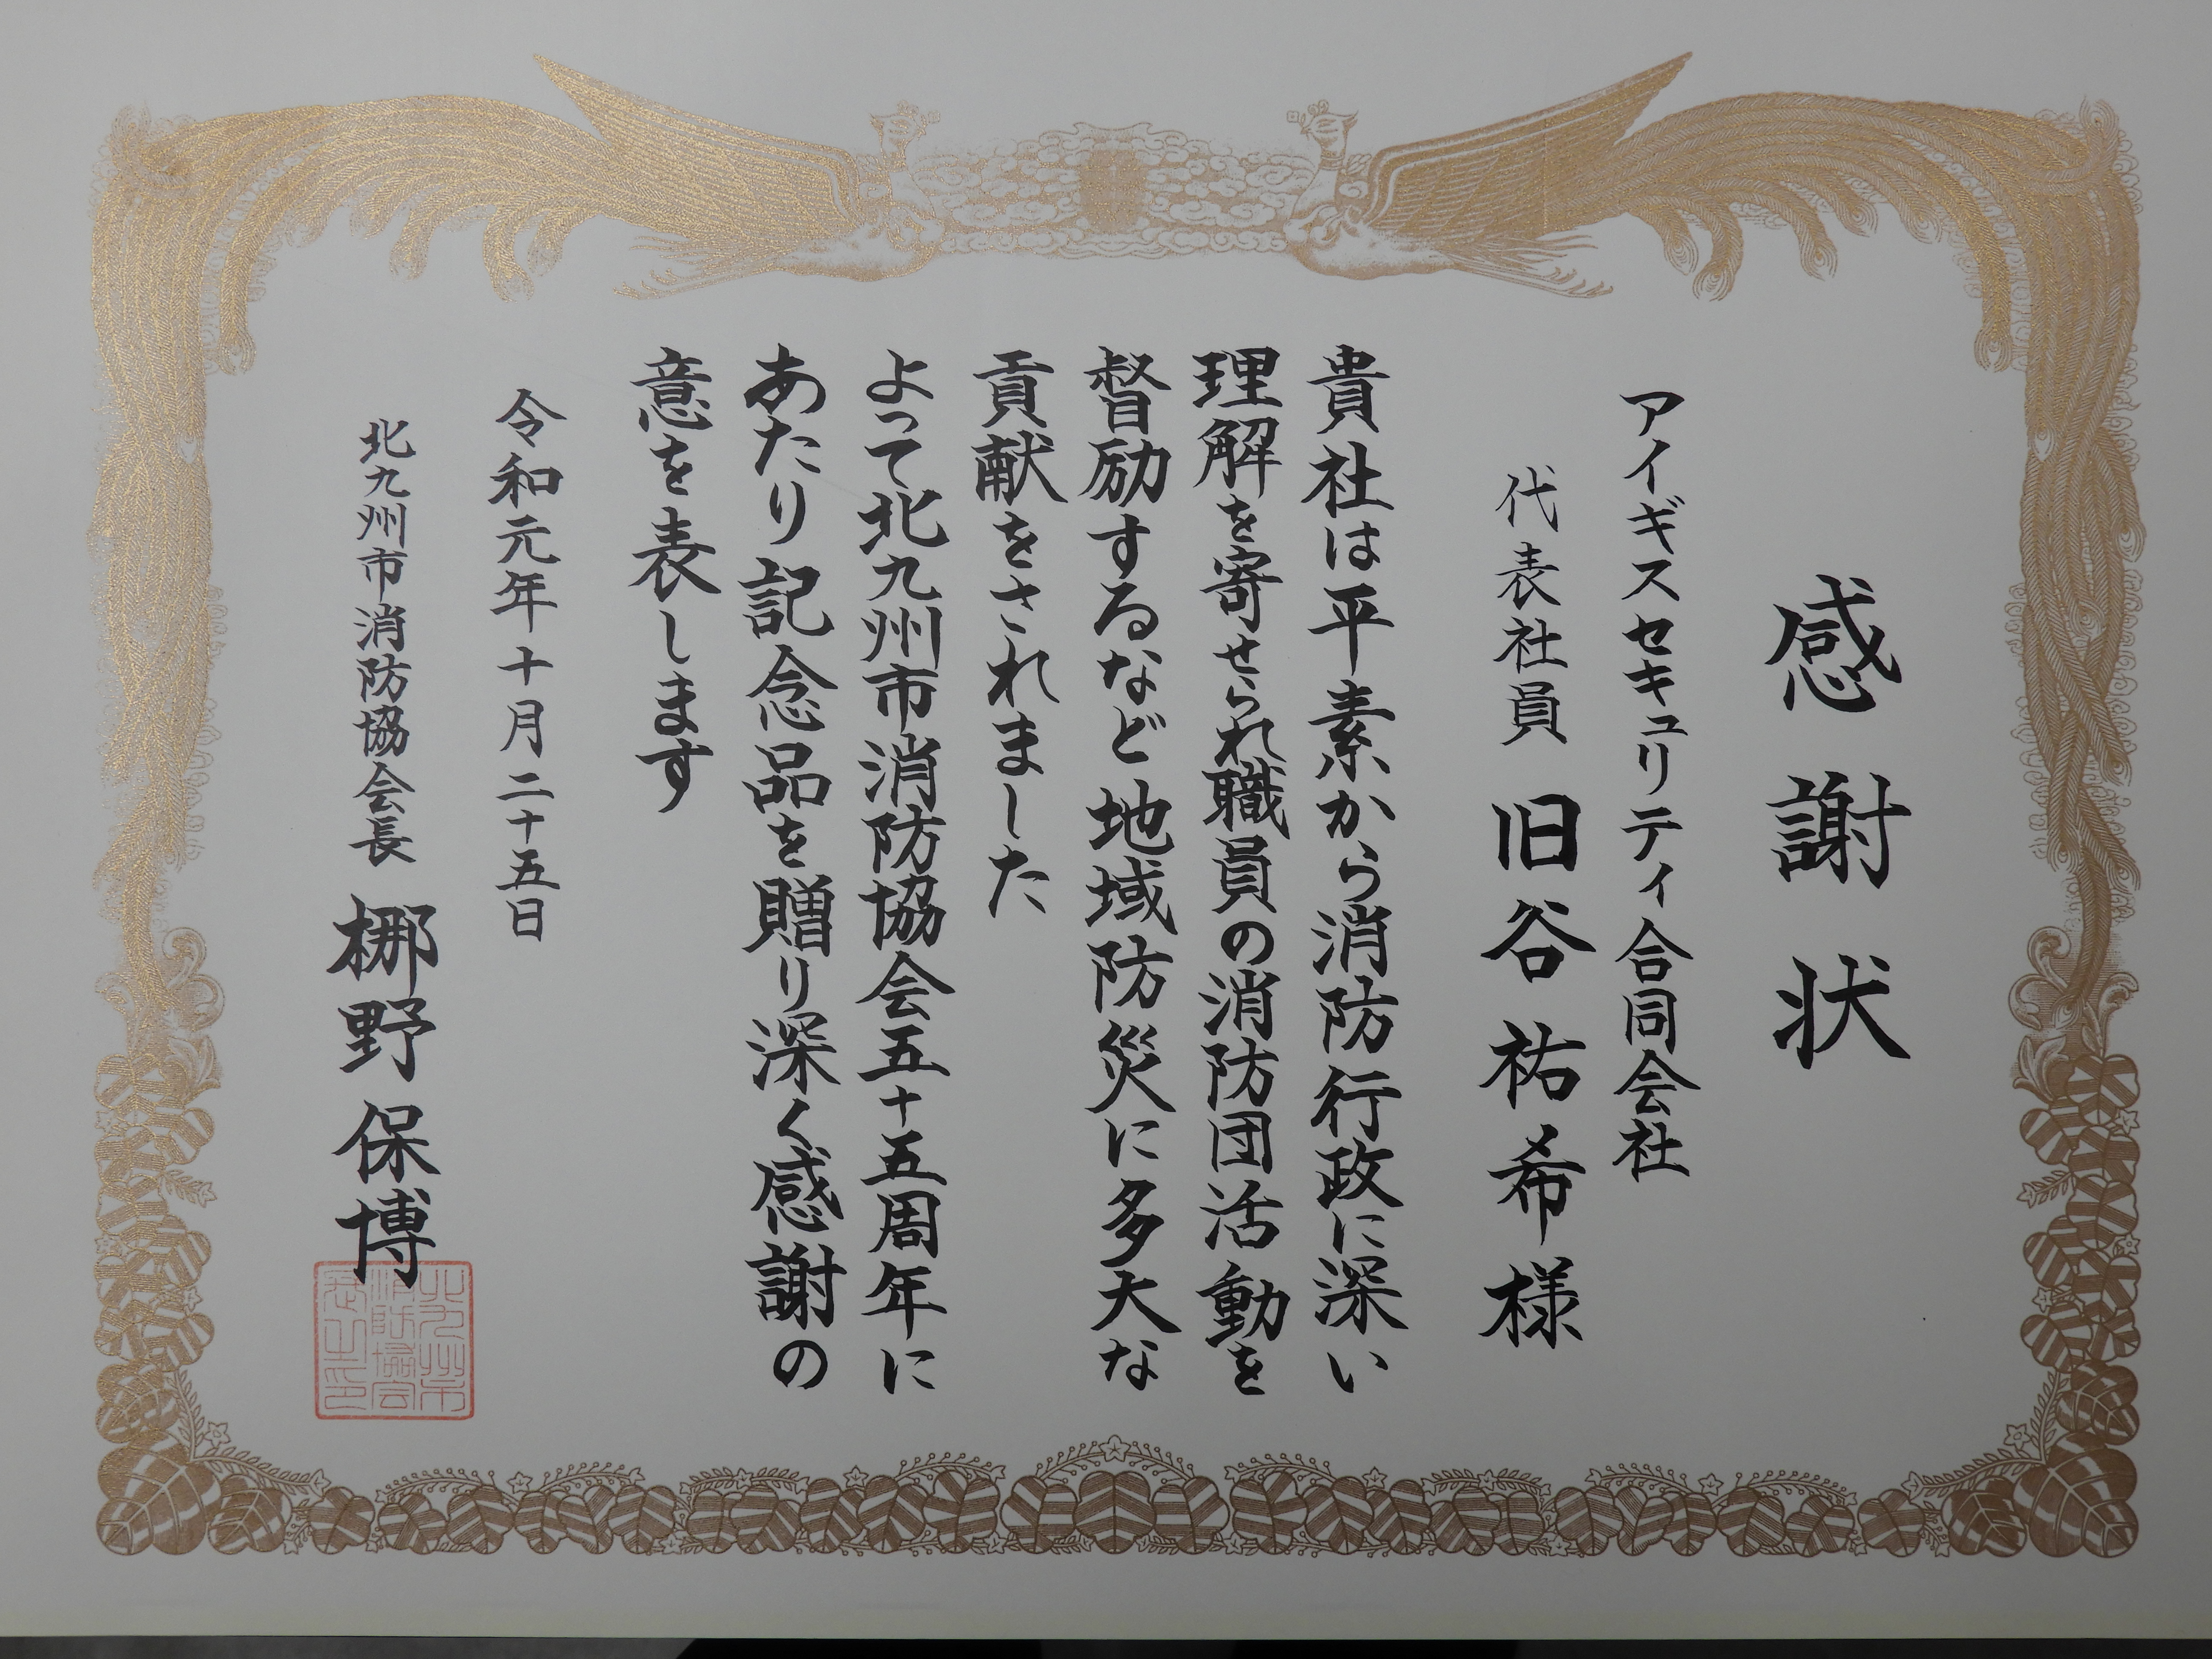 感謝状
アイギスセキュリティ合同会社
代表社員 旧谷祐希様
貴社は平素から消防行政に深い
理解を寄せられ職員の消防団活動を
督励するなど地域防災に多大な
貢献をされました
よって北九州市消防協会五十五周年に
あたり記念品を贈り深く感謝の
意を表します
令和元年十月二十五日
北九州市消防協会長 梛野保博
北九州市
消防協会
長之印